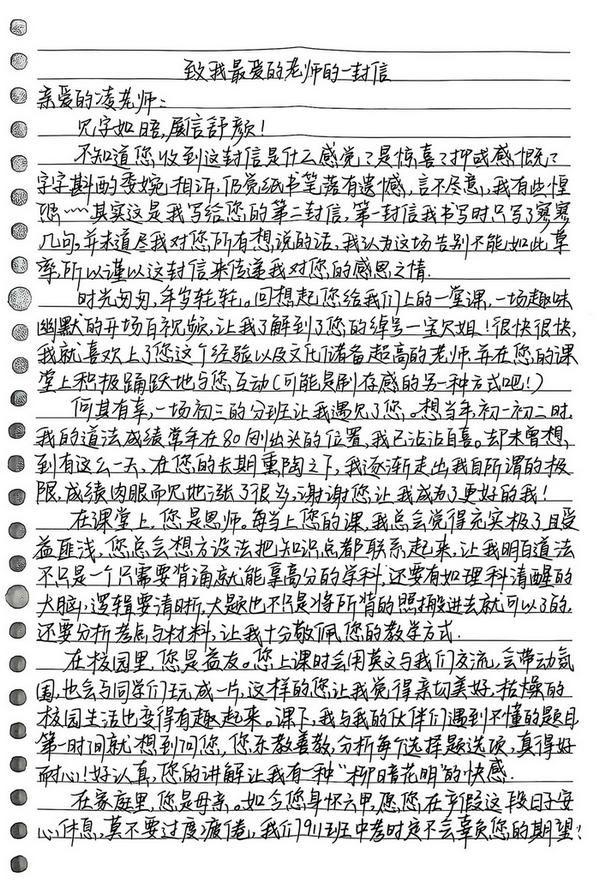 致我最爱的老师的一封信
亲爱的凌老师：
见字如晤，展信舒颜！
不知道您收到这封信是什么感觉？是惊喜？抑或感慨？
字字斟酌委婉相诉，仍觉纸书笔落有遗憾，言不尽意，我有些惶
恐……其实这是我写给您的第二封信，第一封信我书写时只写了寥寥
几句，并未道尽我对您所有想说的话，我认为这场告别不能如此草
率，所以谨以这封信来传递我对您的感恩之情.
时光匆匆，年岁轻轻。回想起您给我们上的一堂课，一场趣味
幽默的开场百视频，让我了解到了您的绰号—宝贝姐！很快很快，
我就喜欢上了您这个经验以及文化储备超高的老师并在您的课
堂上积极踊跃地与您互动(可能是刷存感的另一种方式吧！)
何其有幸，一场初三的分班让我遇见了您。想当年初一初二时，
我的道法成绩常年在80刚出头的位置，我已沾沾自喜。却未曾想，
到有这么一天，在您的长期熏陶之下，我逐渐走出我自所谓的极
限，成绩肉眼而见地涨了很多，谢谢您让我成为了更好的我！
在课堂上，您是恩师。每当上您的课，我总会觉得充实极了且受
益匪浅，您总会想方设法把知识点都联系起来，让我明白道法
不只是一个只需要背诵就能拿高分的学科，还要有如理科清醒的
大脑，逻辑要清晰，大题也不只是将所背的照搬进去就可以了的，
还要分析考点与材料，让我十分敬佩您的教学方式.
在校园里，您是益友。您上课时会用英文与我们交流，会带动氛
围，也会与同学们玩成一片，这样的您让我觉得亲切美好，枯燥的
校园生活也变得有趣起来。课下，我与我的伙伴们遇到不懂的题目
第一时间就想到问您，您乐教善教，分析每个选择题选项，真得好
耐心！好认真，您的讲解让我有一种“柳暗花明”的快感.
在家庭里，您是母亲。如今您身怀六甲，愿您在产假这段日子安
心休息，莫不要过度疲倦，我们911班中考时定不会辜负您的期望！